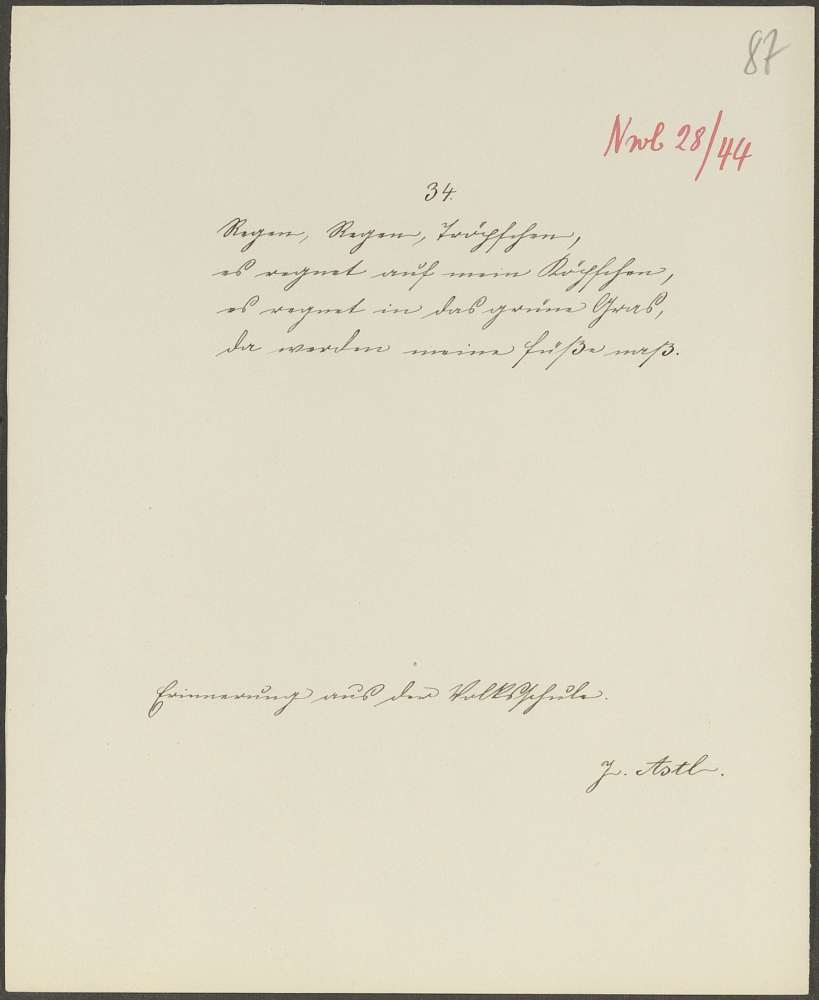 87
Nwb 28/44
34.
Regen, Regen, Tröpfchen,
es regnet auf mein Köpfchen,
es regnet in das grüne Gras,
da werden meine Füße naß.
Erinnerung aus der Volksschule.
J. Astl.